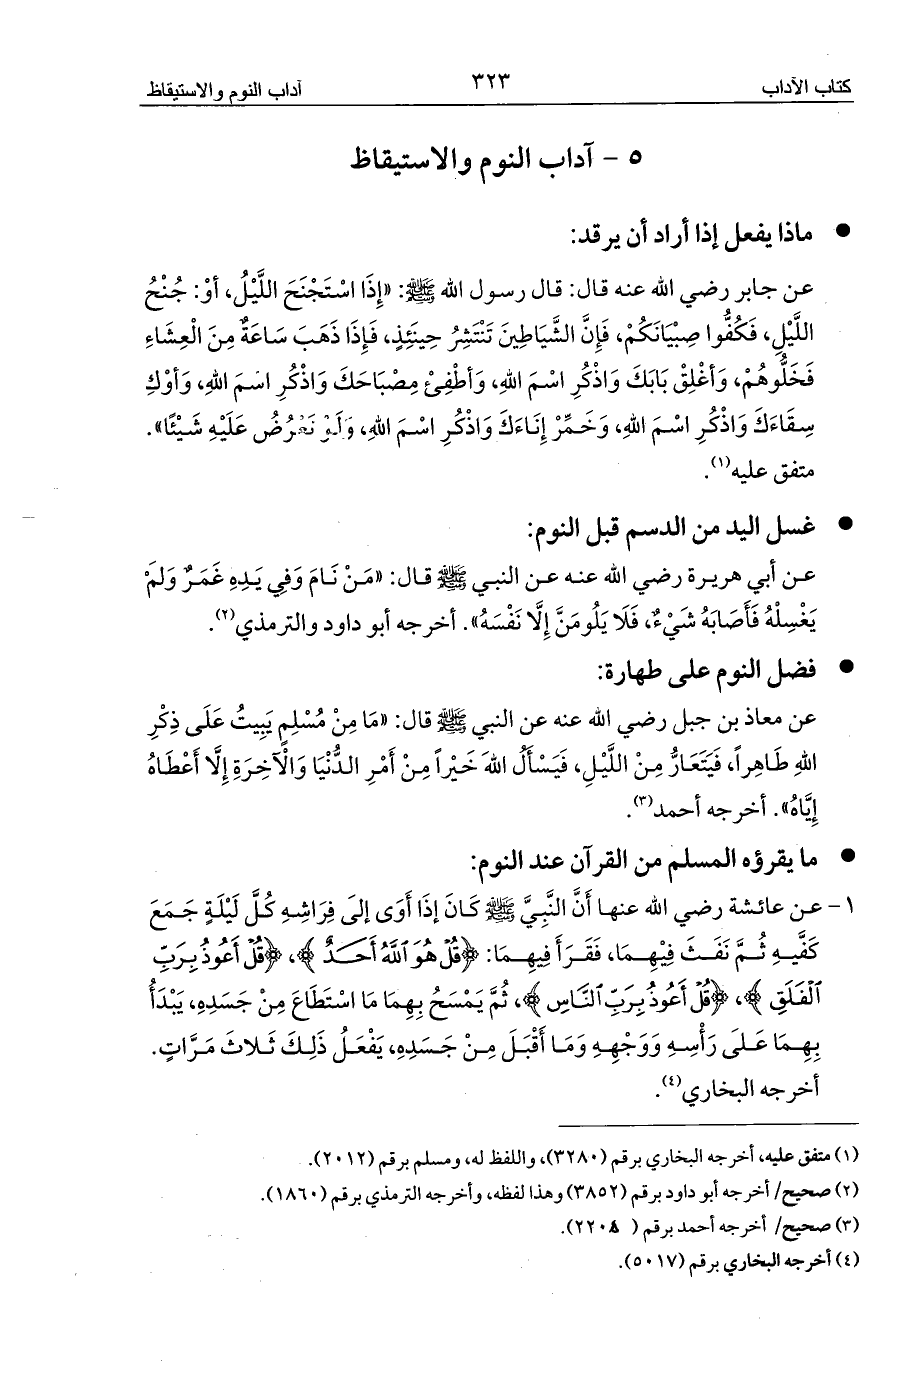 كتاب الآداب ٣٢٣ آداب النوم والاستيقاظ
٥ - آداب النوم والاستيقاظ
● ماذا يفعل إذا أراد أن يرقد:
عن جابر رضي الله عنه قال: قال رسول الله ﷺ: «إِذَا اسْتَجْنَحَ اللَّيْلُ، أوْ: جُنْحُ
اللَّيْلِ، فَكُفُّوا صِبْيَانَكُمْ، فَإِنَّ الشَّيَاطِينَ تَنْتَشِرُ حِينَئِذٍ، فَإِذَا ذَهَبَ سَاعَةٌ مِنَ الْعِشَاءِ
فَخَلُّوهُمْ، وَأغْلِقْ بَابَكَ وَاذْكُرِ اسْمَ اللهِ، وَأطْفِئْ مِصْبَاحَكَ وَاذْكُرِ اسْمَ اللهِ، وَأوْكِ
سِقَاءَكَ وَاذْكُرِ اسْمَ اللهِ، وَخَمِّرْ إِنَاءَكَ وَاذْكُرِ اسْمَ اللهِ، وَلَوْ تَعْرُضُ عَلَيْهِ شَيْئًا».
متفق عليه(١).
● غسل اليد من الدسم قبل النوم:
عن أبي هريرة رضي الله عنه عن النبي ﷺ قال: «مَنْ نَامَ وَفِي يَدِهِ غَمَرٌ وَلَمْ
يَغْسِلْهُ فَأَصَابَهُ شَيْءٌ، فَلَا يَلُومَنَّ إِلَّا نَفْسَهُ». أخرجه أبو داود والترمذي(٢).
● فضل النوم على طهارة:
عن معاذ بن جبل رضي الله عنه عن النبي ﷺ قال: «مَا مِنْ مُسْلِمٍ يَبِيتُ عَلَى ذِكْرِ
اللهِ طَاهِراً، فَيَتَعَارُّ مِنْ اللَّيْلِ، فَيَسْأَلُ اللهَ خَيْراً مِنْ أمْرِ الدُّنْيَا وَالْآخِرَةِ إِلَّا أعْطَاهُ
إِيَّاهُ». أخرجه أحمد(٣).
● ما يقرؤه المسلم من القرآن عند النوم:
١- عن عائشة رضي الله عنها أَنَّ النَّبِيَّ ﷺ كَانَ إِذَا أوَى إِلَى فِرَاشِهِ كُلَّ لَيْلَةٍ جَمَعَ
كَفَّيهِ ثُمَّ نَفَثَ فِيْهِمَا، فَقَرَأ فِيهِمَا: ﴿قُلْ هُوَ ٱللَّهُ أَحَدٌ﴾، ﴿قُلْ أَعُوذُ بِرَبِّ
ٱلْفَلَقِ﴾، ﴿قُلْ أَعُوذُ بِرَبِّ ٱلنَّاسِ﴾، ثُمَّ يَمْسَحُ بِهِمَا مَا اسْتَطَاعَ مِنْ جَسَدِهِ، يَبْدَأُ
بِهِمَا عَلَى رَأْسِهِ وَوَجْهِهِ وَمَا أقْبَلَ مِنْ جَسَدِهِ، يَفْعَلُ ذَلِكَ ثَلاثَ مَرَّاتٍ.
أخرجه البخاري(٤).
(١) متفق عليه، أخرجه البخاري برقم (٣٢٨٠)، واللفظ له، ومسلم برقم (٢٠١٢).
(٢) صحيح/ أخرجه أبو داود برقم (٣٨٥٢) وهذا لفظه، وأخرجه الترمذي برقم (١٨٦٠).
(٣) صحيح/ أخرجه أحمد برقم ( ٢٢٠٤٨).
(٤) أخرجه البخاري برقم (٥٠١٧).